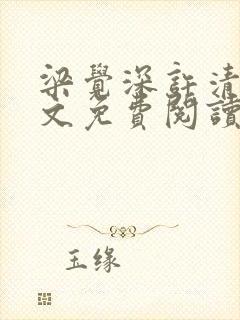 梁覺深許清
文免費閱讀
玉缘